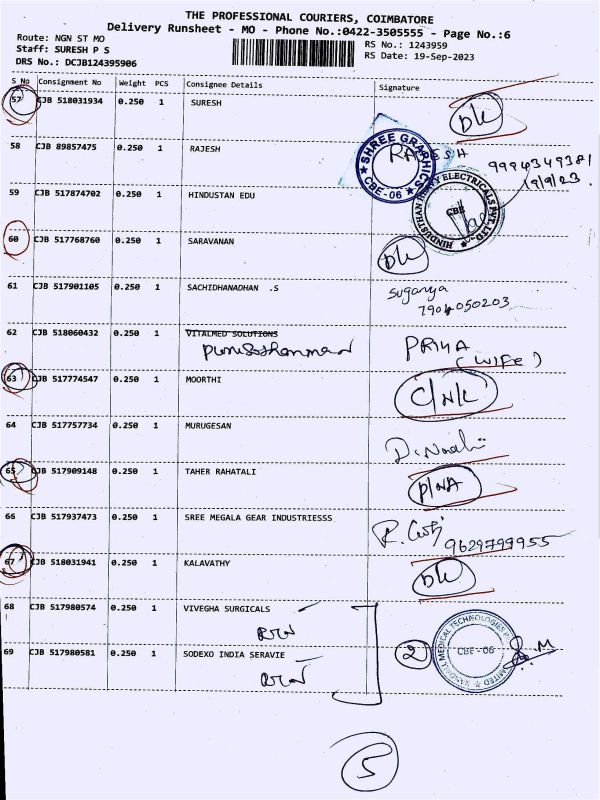 THE PROFESSIONAL COURIERS, COIMBATORE
Delivery Runsheet - MO - Phone No.:0422-3505555 - Page No.:6
Route: NGN ST MO
RS No.: 1243959
Staff: SURESH P S
RS Date: 19-Sep-2023
DRS No.: DCJB124395906
S No Consignment No Weight PCS Consignee Details Signature
57 CJB 518031934 0.250 1 SURESH D/L
58 CJB 89857475 0.250 1 RAJESH RAJESH
SHREE GRAPHICS CBE-06
9994349381
19/9/23.
59 CJB 517874702 0.250 1 HINDUSTAN EDU
HINDUSTHAN HEAVY ELECTRICALS PVT. LTD. CBE
60 CJB 517768760 0.250 1 SARAVANAN D/L
61 CJB 517901105 0.250 1 SACHIDHANADHAN .S Suganya
7904050203
62 CJB 518060432 0.250 1 VITALMED SOLUTIONS PRIYA
(WIFE)
63 CJB 517774547 0.250 1 MOORTHI C/N/L
64 CJB 517757734 0.250 1 MURUGESAN
65 CJB 517909148 0.250 1 TAHER RAHATALI P/NA
66 CJB 517937473 0.250 1 SREE MEGALA GEAR INDUSTRIESSS
9629799955
67 CJB 518031941 0.250 1 KALAVATHY D/L
68 CJB 517980574 0.250 1 VIVEGHA SURGICALS
69 CJB 517980581 0.250 1 SODEXO INDIA SERAVIE 2
MEDICAL TECHNOLOGIES CBE-06
5